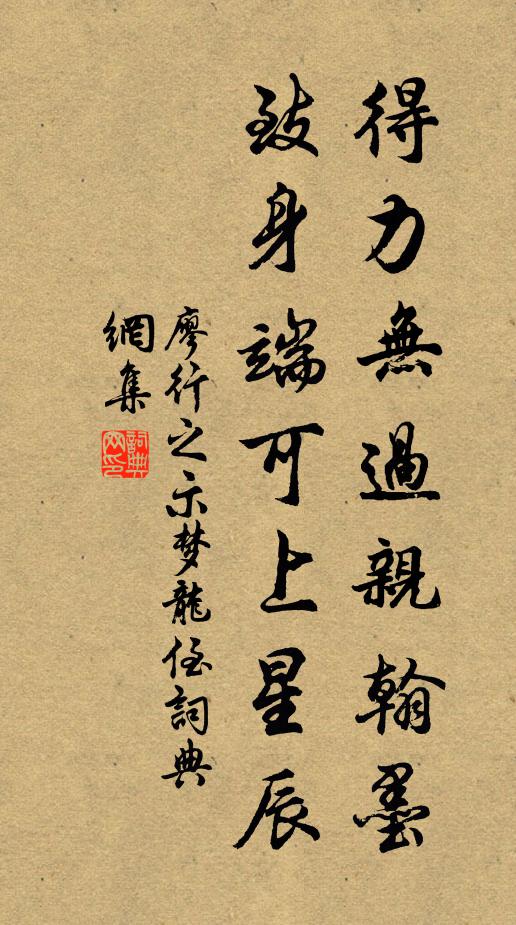 得力無過親翰墨
致身端可上星辰
廖行之示梦龍侄詞典
網集
詞典
网印